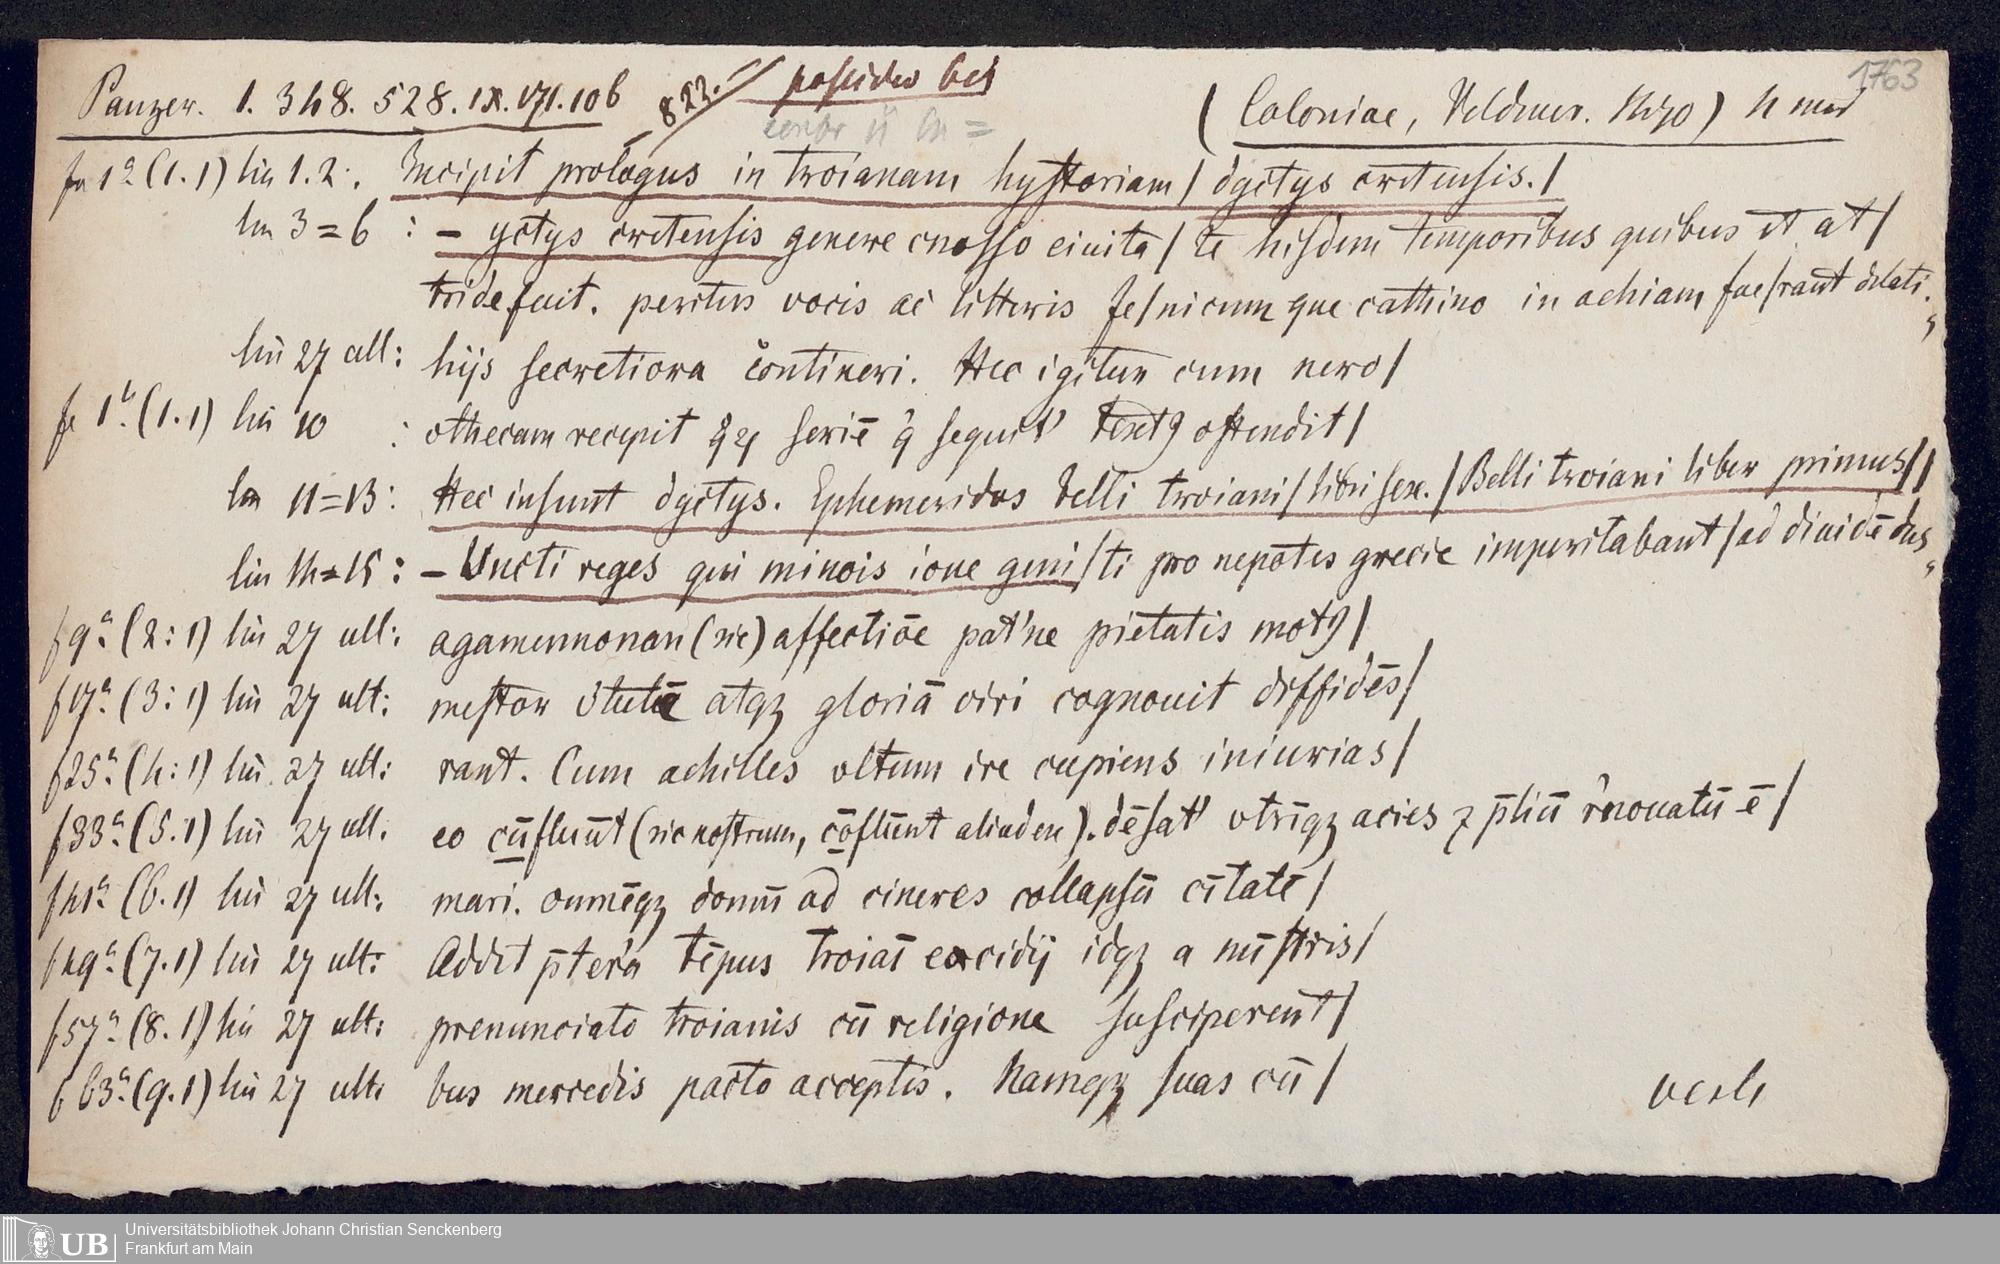 1763
Panzer. 1. 348. 528. IX. 171. 106 822. possideo bis (Coloniae, Veldener. 1470) 4 min
fa 1a (1.1) lin 1.2: Incipit prologus in troianam hystoriam / dyctys cretensis. /
lin 3=6 : – yctys cretensis genere cnosso ciuita / te hisdem temporibus quibus et at /
tride fuit. peritus vocis ac litteris fe / nicum que cathino in achiam fue / rant delati.
lin 27 ult: hijs secretiora contineri. Hec igitur cum nero /
f 1b (1.1) lin 10 : othecam recepit seriē sequit' text9 ostendit /
lin 11=13: Hec insunt dyctys. Ephemeridos belli troiani / libri sex. / Belli troiani liber primus //
lin 14=15 : – Uncti reges qui minois ioue geni / ti pro nepotes grecie imperitabant / ad diuidēdus
f 9a (2:1) lin 27 ult: agamemnonan (sic) affectiōe pat'ne pietatis mot9 /
f 17a (3:1) lin 27 ult: mestor atqz gloriā viri cognouit diffidēs /
f 25a (4:1) lin 27 ult: rant. Cum achilles vltum ire cupiens iniurias /
f 33a (5.1) lin 27 ult. eo cūfluūt (sic nostrum, cōfluūnt aliud ex). dēsat' vtrīqz acies z p̄liū r'nouatū ē /
f 41a (6.1) lin 27 ult: mari. onmēqz domū ad cineres collapsū cītatē /
f 49a (7.1) lin 27 ult: Addit p̄tera tēpus troiāi excidij idqz a nūstris /
f 57a (8.1) lin 27 ult: prenunciato troianis cū religione susciperent /
f 63a (9.1) lin 27 ult. bus mercedis pacto acceptis. Namqz suas cū /
verte
UB Universitätsbibliothek Johann Christian Senckenberg
Frankfurt am Main